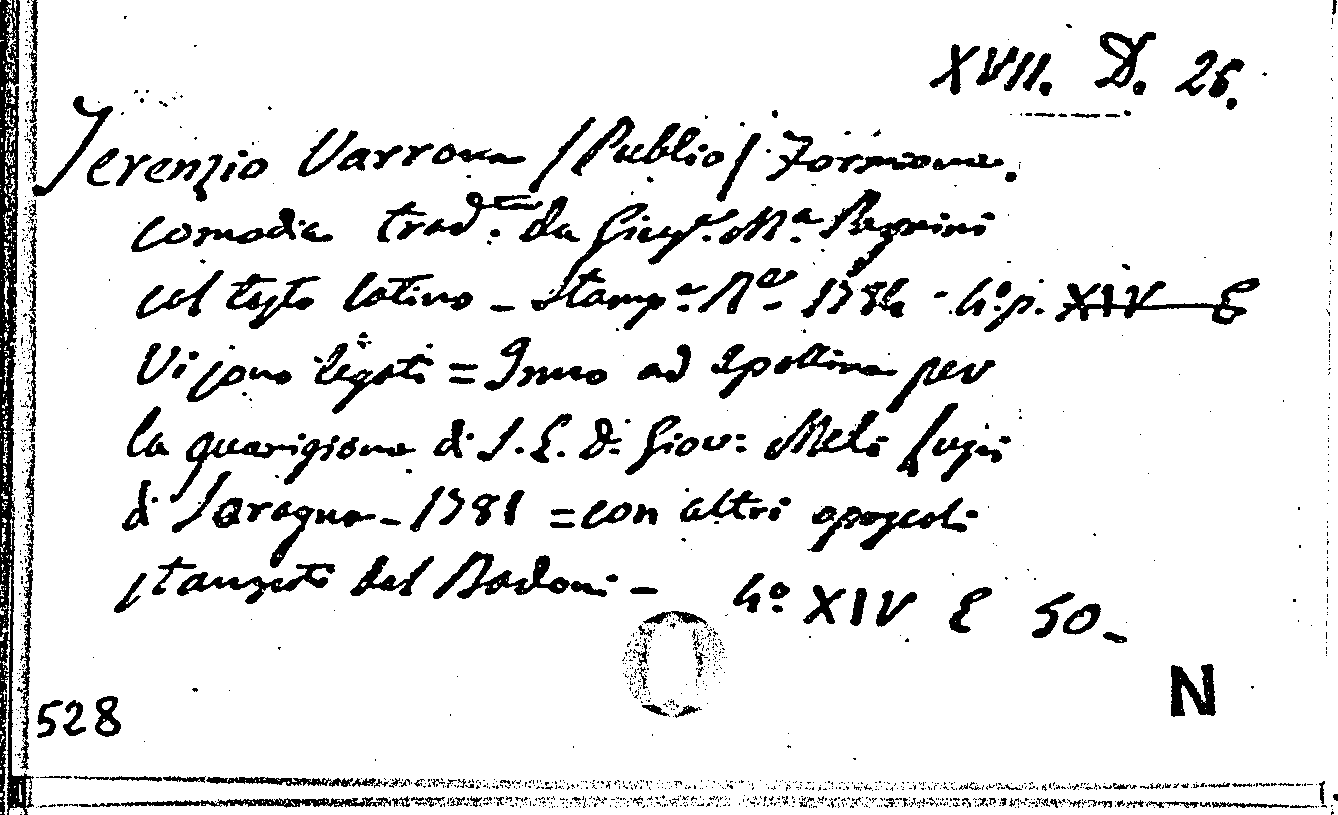 XVII. D. 26.
Terenzio Varrone /Publio/ Formione.
comedia trad.e da Giusp.e M.a Pagnini
col testo latino - Stamp.a R.a 1784 - 4.o p. XIV E
Vi sono legati = Inno ad Apolline per
la guarigione di S. E. D. Giov: Meli Lupi
di Soragna - 1781 = con altri opuscoli
stampati dal Bodoni - 4.o XIV E 50 -
528
N